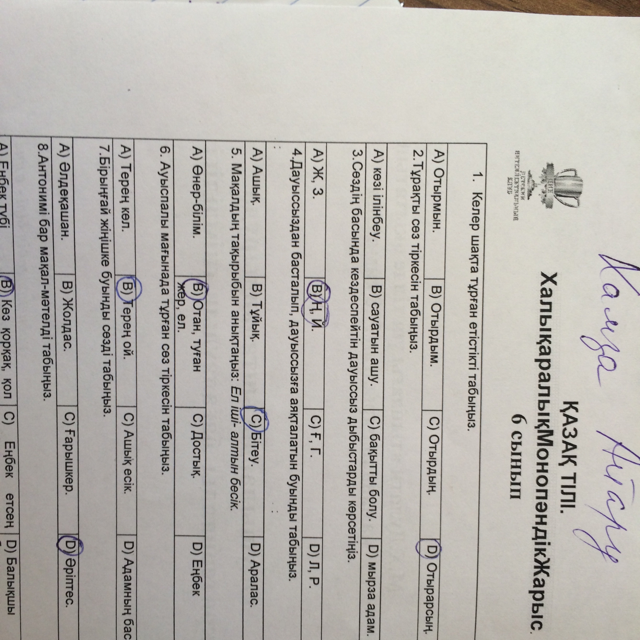 Хамза Айару
ҚАЗАҚ ТІЛІ.
ХалықаралықМонопәндікЖарыс.
6 сынып
1. Келер шақта тұрған етістікті табыңыз.
A) Отырмын. B) Отырдым. C) Отырдың. D) Отырарсың.
2.Тұрақты сөз тіркесін табыңыз.
A) көзі ілінбеу. B) сауатын ашу. C) бақытты болу. D) мырза адам.
3.Сөздің басында кездеспейтін дауыссыз дыбыстарды көрсетіңіз.
A) Ж, З. B) Ң, Й. C) Ғ, Г. D) Л, Р.
4.Дауыссыздан басталып, дауыссызға аяқталатын буынды табыңыз.
A) Ашық. B) Тұйық. C) Бітеу. D) Аралас.
5. Мақалдың тақырыбын анықтаңыз: Ел іші- алтын бесік.
A) Өнер-білім. B) Отан, туған жер, ел. C) Достық. D) Еңбек
6. Ауыспалы мағынада тұрған сөз тіркесін табыңыз.
A) Терең көл. B) Терең ой. C) Ашық есік. D) Адамның бас
7.Бірыңғай жіңішке буынды сөзді табыңыз.
A) Әлдеқашан. B) Жолдас. C) Ғарышкер. D) Әріптес.
8.Антонимі бар мақал-мәтелді табыңыз.
A) Еңбек түбі B) Көз қорқақ, қол C) Еңбек етсең D) Балықшы